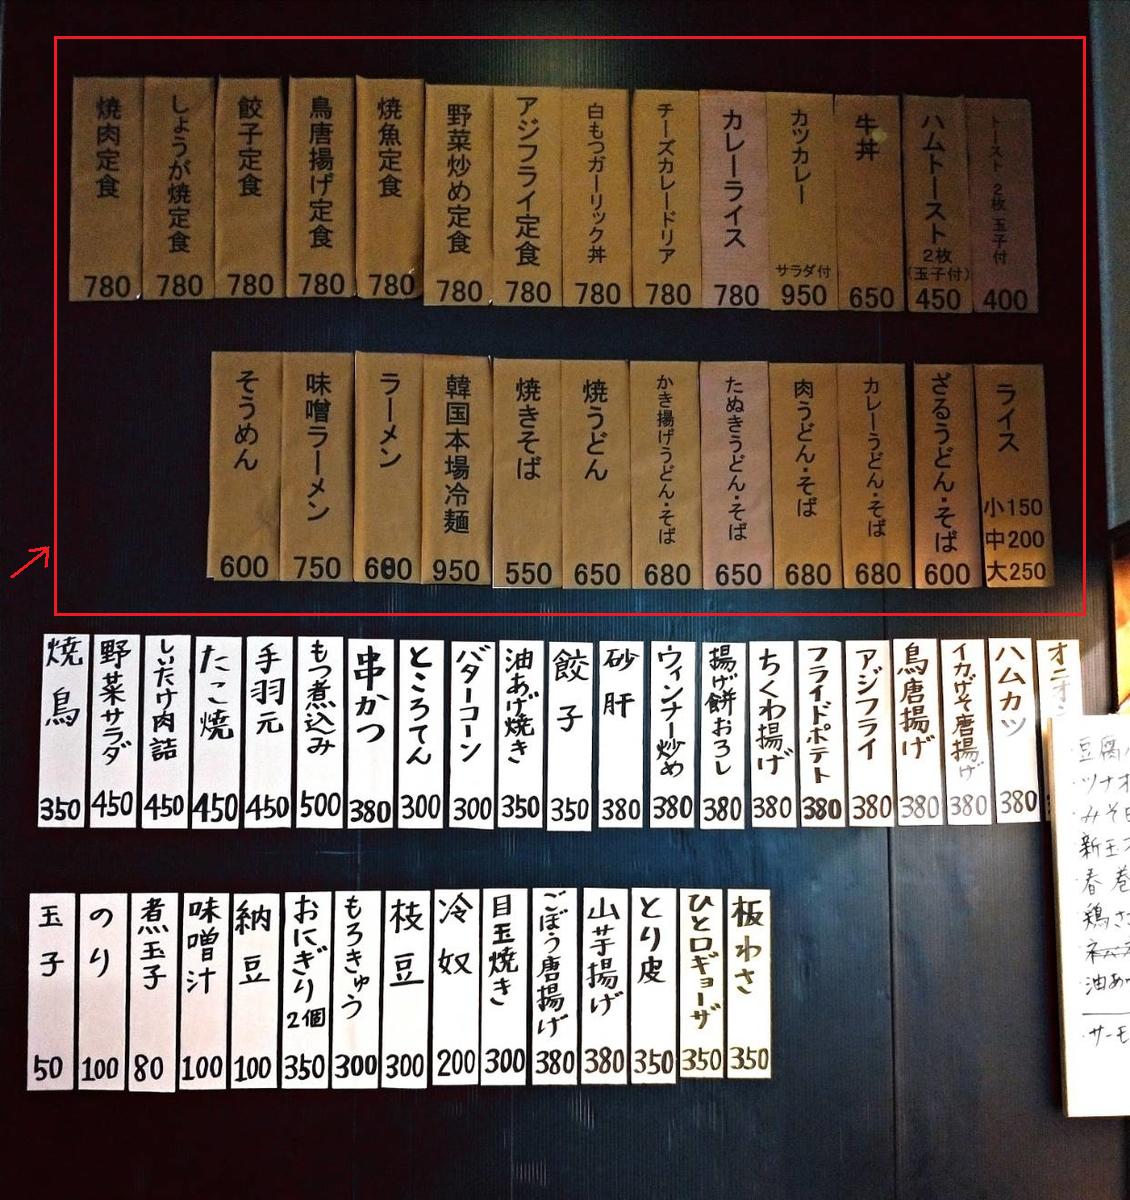 焼肉定食
780
しょうが焼定食
780
餃子定食
780
鳥唐揚げ定食
780
焼魚定食
780
野菜炒め定食
780
アジフライ定食
780
白もつガーリック丼
780
チーズカレードリア
780
カレーライス
780
カツカレー
サラダ付
950
牛丼
650
ハムトースト
2枚
(玉子付)
450
トースト 2枚 玉子付
400
そうめん
600
味噌ラーメン
750
ラーメン
600
韓国本場冷麺
950
焼きそば
550
焼うどん
650
かき揚げうどん・そば
680
たぬきうどん・そば
650
肉うどん・そば
680
カレーうどん・そば
680
ざるうどん・そば
600
ライス
小150
中200
大250
焼鳥
350
野菜サラダ
450
しいたけ肉詰
450
たこ焼
450
手羽元
450
もつ煮込み
500
串かつ
380
ところてん
300
バターコーン
300
油あげ焼き
350
餃子
350
砂肝
380
ウィンナー炒め
380
揚げ餅おろし
380
ちくわ揚げ
380
フライドポテト
380
アジフライ
380
鳥唐揚げ
380
イカげそ唐揚げ
380
ハムカツ
380
オニオ
玉子
50
のり
100
煮玉子
80
味噌汁
100
納豆
100
おにぎり
2個
350
もろきゅう
300
枝豆
300
冷奴
200
目玉焼き
300
ごぼう唐揚げ
380
山芋揚げ
380
とり皮
350
ひと口ギョーザ
350
板わさ
350
・豆腐
・ツナオ
・みそ
新玉
・春巻
鶏さ
・油あ
・サーモ